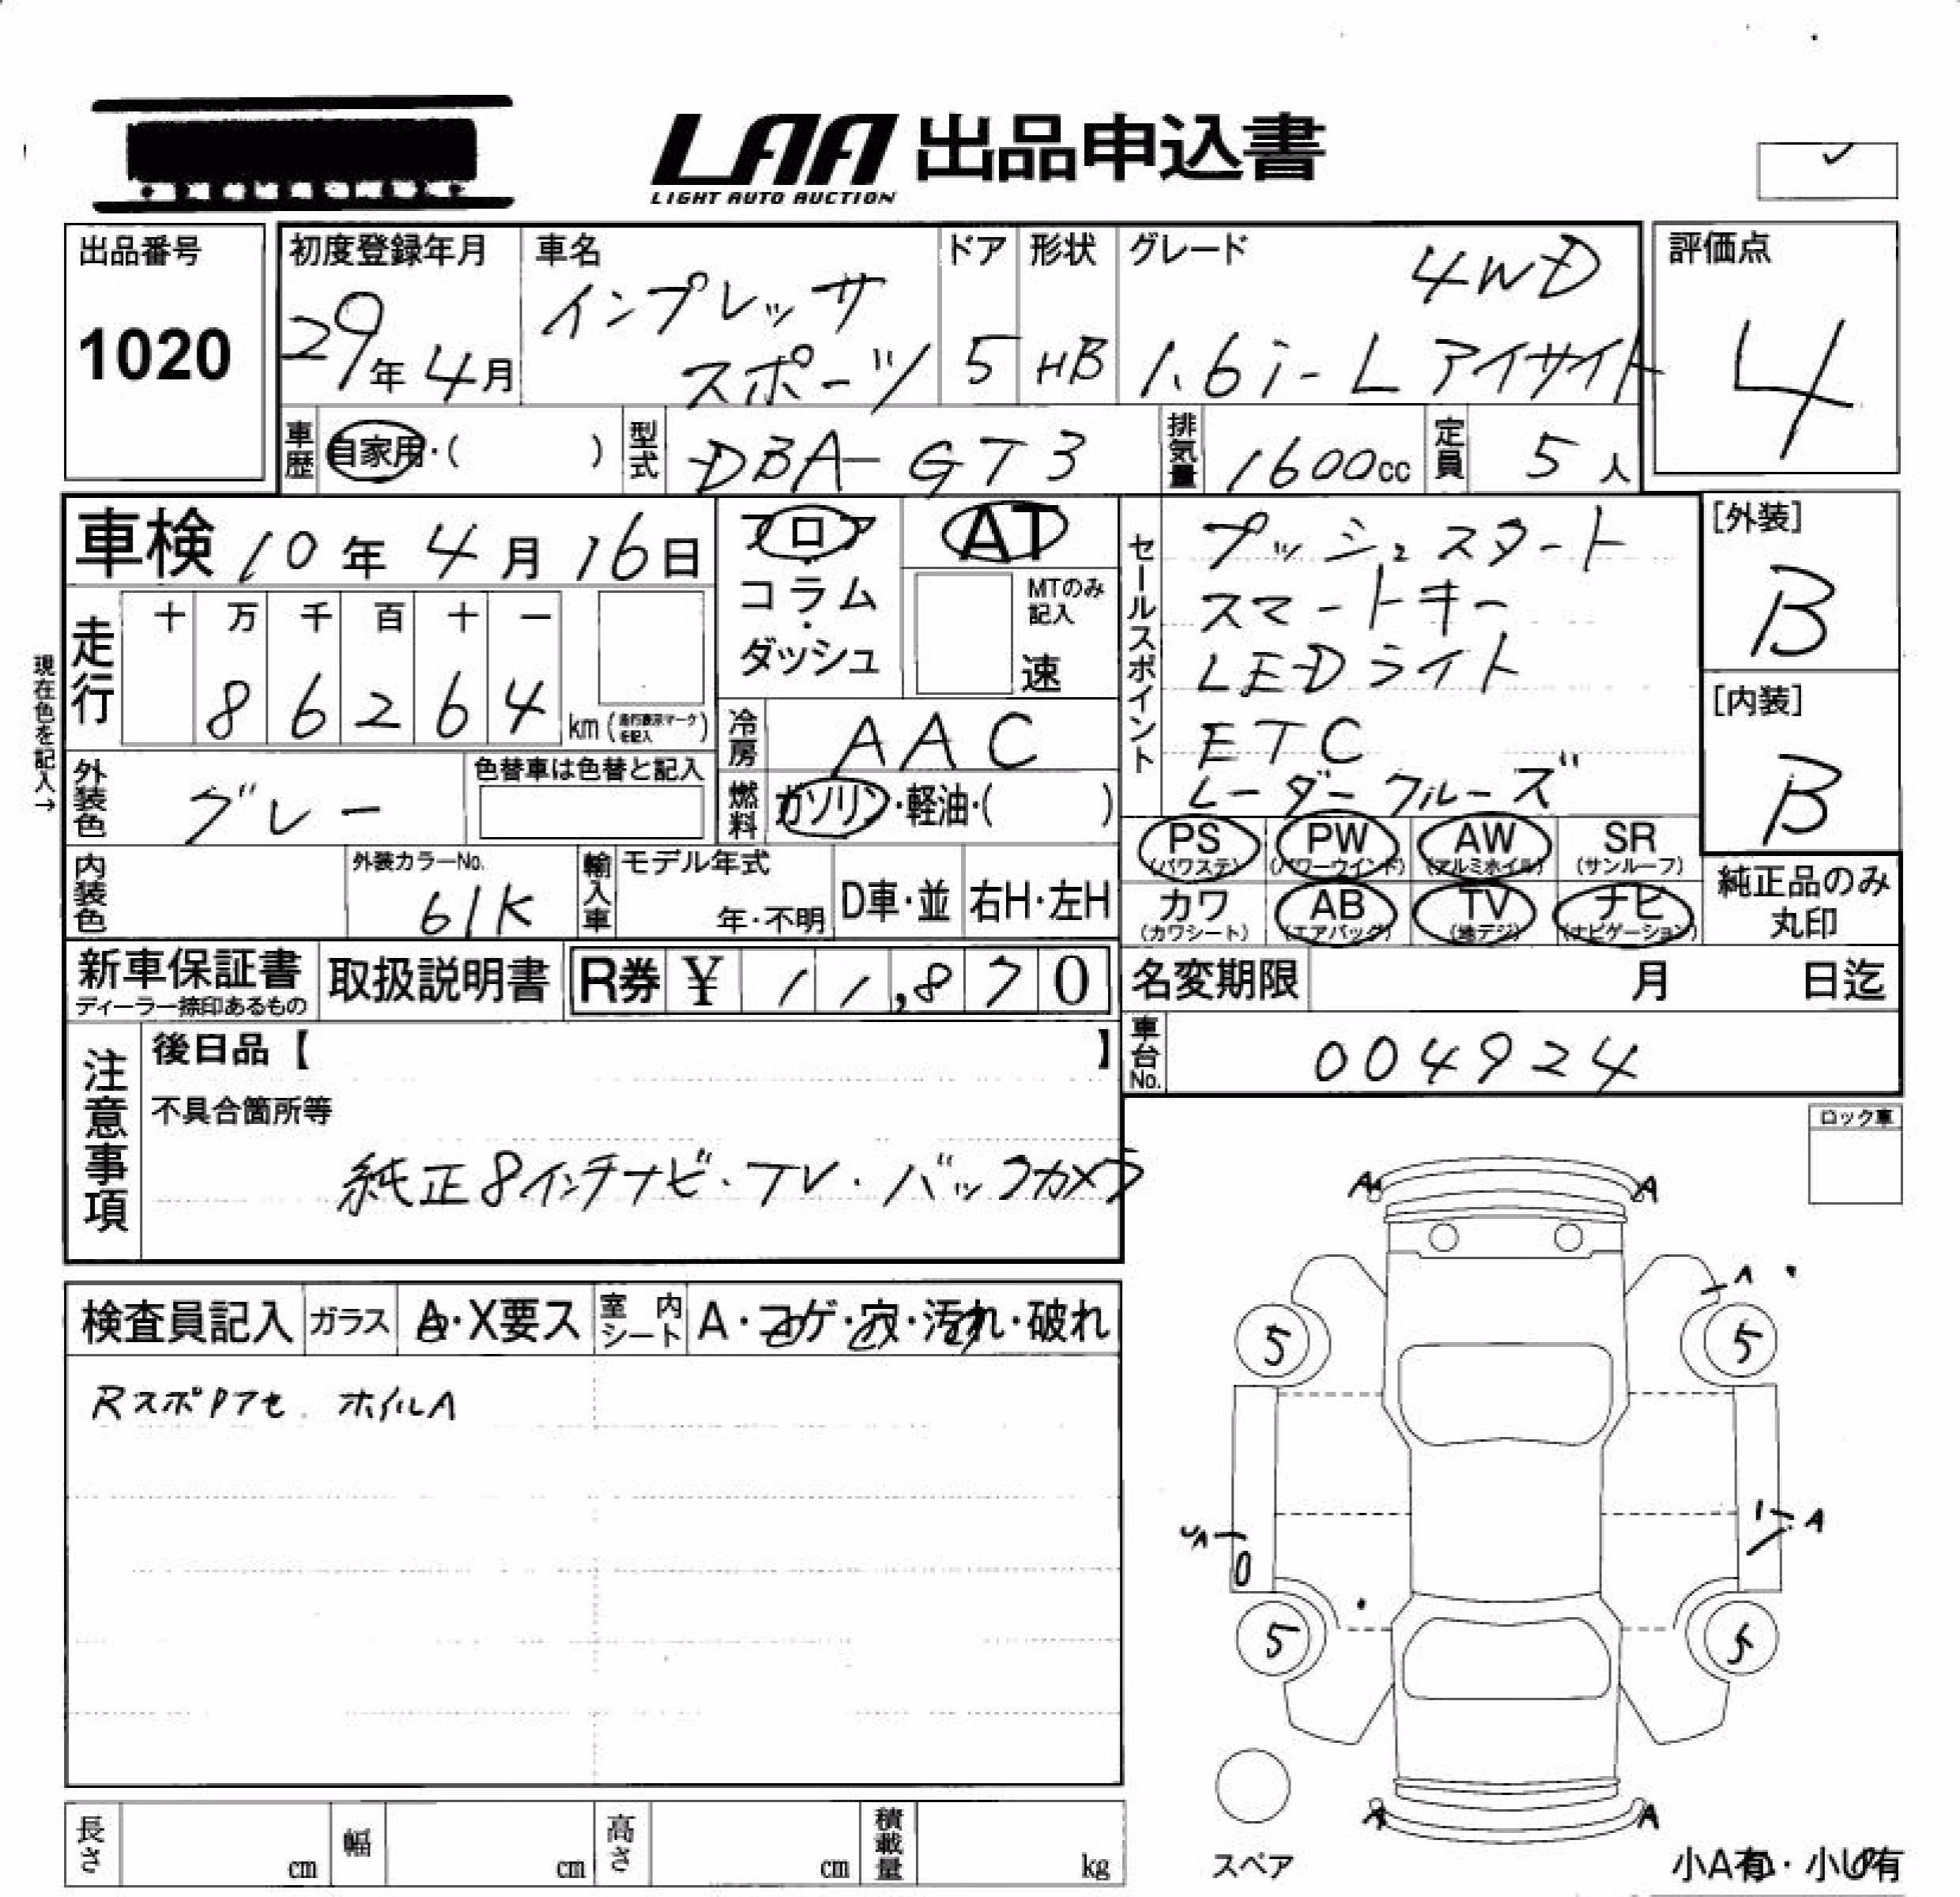 LAA 出品申込書
LIGHT AUTO AUCTION
出品番号
1020
初度登録年月
29年4月
車名
インプレッサ
スポーツ
ドア
5
形状
HB
グレード
4WD
1.6i-L アイサイト
評価点
4
車歴
自家用・( )
型式
DBA-GT3
排気量
1600cc
定員
5人
車検 10年4月16日
フロア
コラム
ダッシュ
AT
MTのみ
記入
速
セールスポイント
プッシュスタート
スマートキー
LEDライト
ETC
レーダークルーズ
[外装]
B
[内装]
B
現在色を記入→
走行
十 万 千 百 十 一
8 6 2 6 4 km(走行表示マークを記入)
冷房
AAC
外装色
グレー
色替車は色替と記入
燃料
ガソリン・軽油・( )
PS (パワステ)
PW (パワーウインド)
AW (アルミホイル)
SR (サンルーフ)
カワ (カワシート)
AB (エアバッグ)
TV (地デジ)
ナビ (ナビゲーション)
純正品のみ
丸印
内装色
外装カラーNo.
61K
輸入車
モデル年式
年・不明
D車・並
右H・左H
新車保証書
ディーラー捺印あるもの
取扱説明書
R券 ¥ 11,870
名変期限 月 日迄
車台No.
004924
注意事項
後日品【 】
不具合箇所等
純正8インチナビ・TV・バックカメラ
ロック車
検査員記入
ガラス
A・X要ス
室内シート
A・コゲ・穴・汚れ・破れ
Rスポ Dアセ. ホイルA
A A
A
5 5
A
A
5 5
A A
スペア
小A有・小U有
長さ cm
幅 cm
高さ cm
積載量 kg